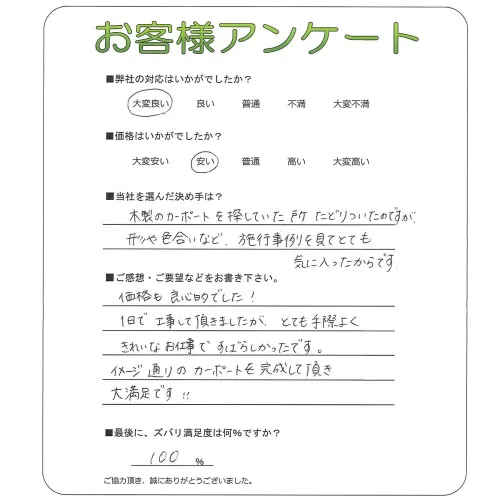 お客様アンケート
■弊社の対応はいかがでしたか?
大変良い 良い 普通 不満 大変不満
■価格はいかがでしたか?
大変安い 安い 普通 高い 大変高い
■当社を選んだ決め手は?
木製のカーポートを探していた所たどりついたのですが、
形や色合いなど、施行事例を見てとても
気に入ったからです
■ご感想・ご要望などをお書き下さい。
価格も良心的でした!
1日で工事して頂きましたが、とても手際よく
きれいなお仕事ですばらしかったです。
イメージ通りのカーポートを完成して頂き
大満足です!!
■最後に、ズバリ満足度は何%ですか?
100 %
ご協力頂き、誠にありがとうございました。